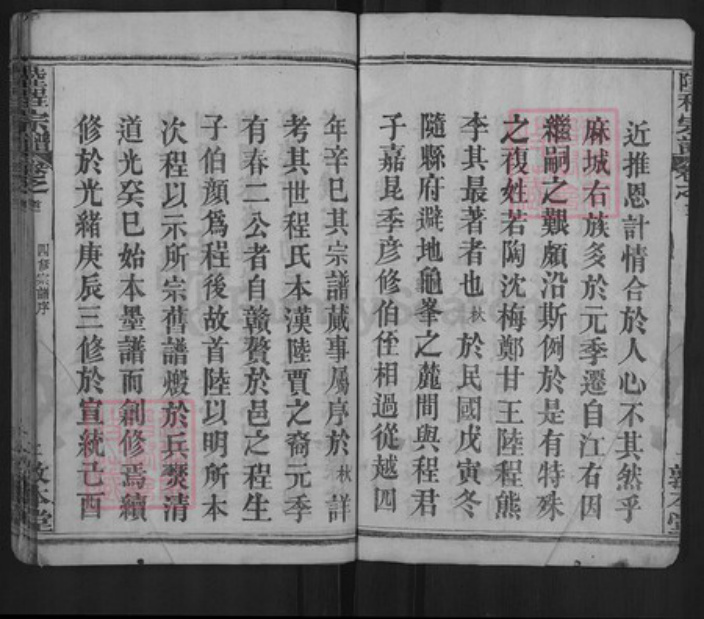 近推恩計情合於人心不其然乎
麻城右族多於元季遷自江右因
繼嗣之艱頗沿斯例於是有特殊
之複姓若陶沈梅鄭甘王陸程熊
李其最著者也秋於民國戊寅冬
隨縣府避地龜峯之麓間與程君
子嘉昆季彥修伯侄相過從越四
年辛巳其宗譜蕆事屬序於秋詳
考其世程氏本漢陸賈之裔元季
有春二公者自贛贅於邑之程生
子伯顏爲程後故首陸以明所本
次程以示所宗舊譜燬於兵燹清
道光癸巳始本墨譜而創修焉續
修於光緒庚辰三修於宣統己酉
陸程宗譜 卷之首
四修宗譜序
敦本堂